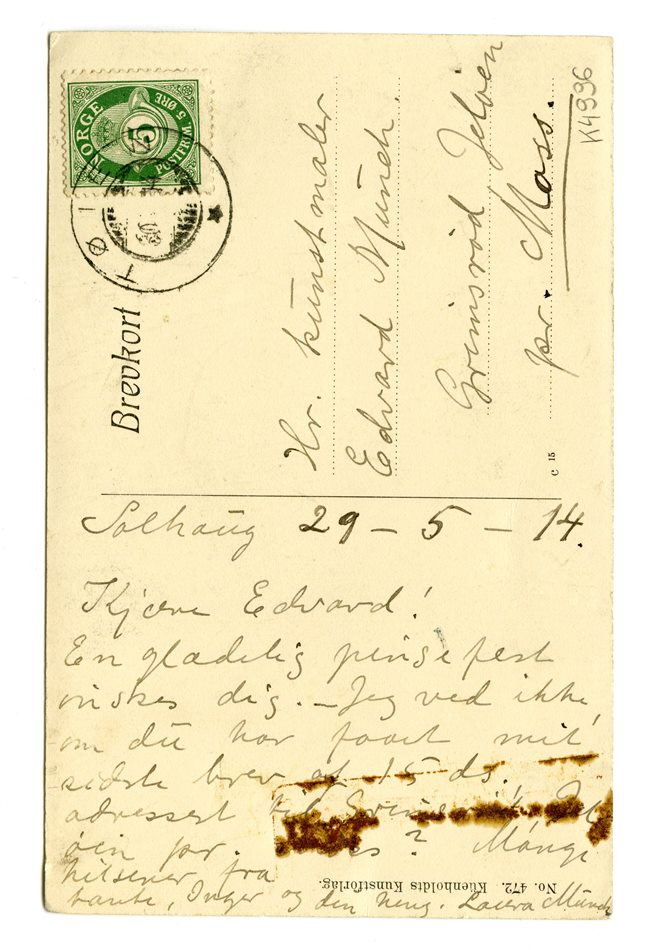 NORGE
POSTFRIM 5 ØRE
5
TØI
30
Brevkort
Hr. kunstmaler
Edvard Munch.
Grimsrød, Jeløen
pr. Moss.
K4996
C 15
Solhaug 29 – 5 – 14.
Kjære Edvard!
En glædelig pinsefest
ønskes dig. – Jeg ved ikke,
om du har faaet mit
sidste brev af 15 ds.
adressert til
øen pr. ? Mange
hilsener fra
tante, Inger og din heng. Laura Munch
No. 472. Küenholdts Kunstforlag.